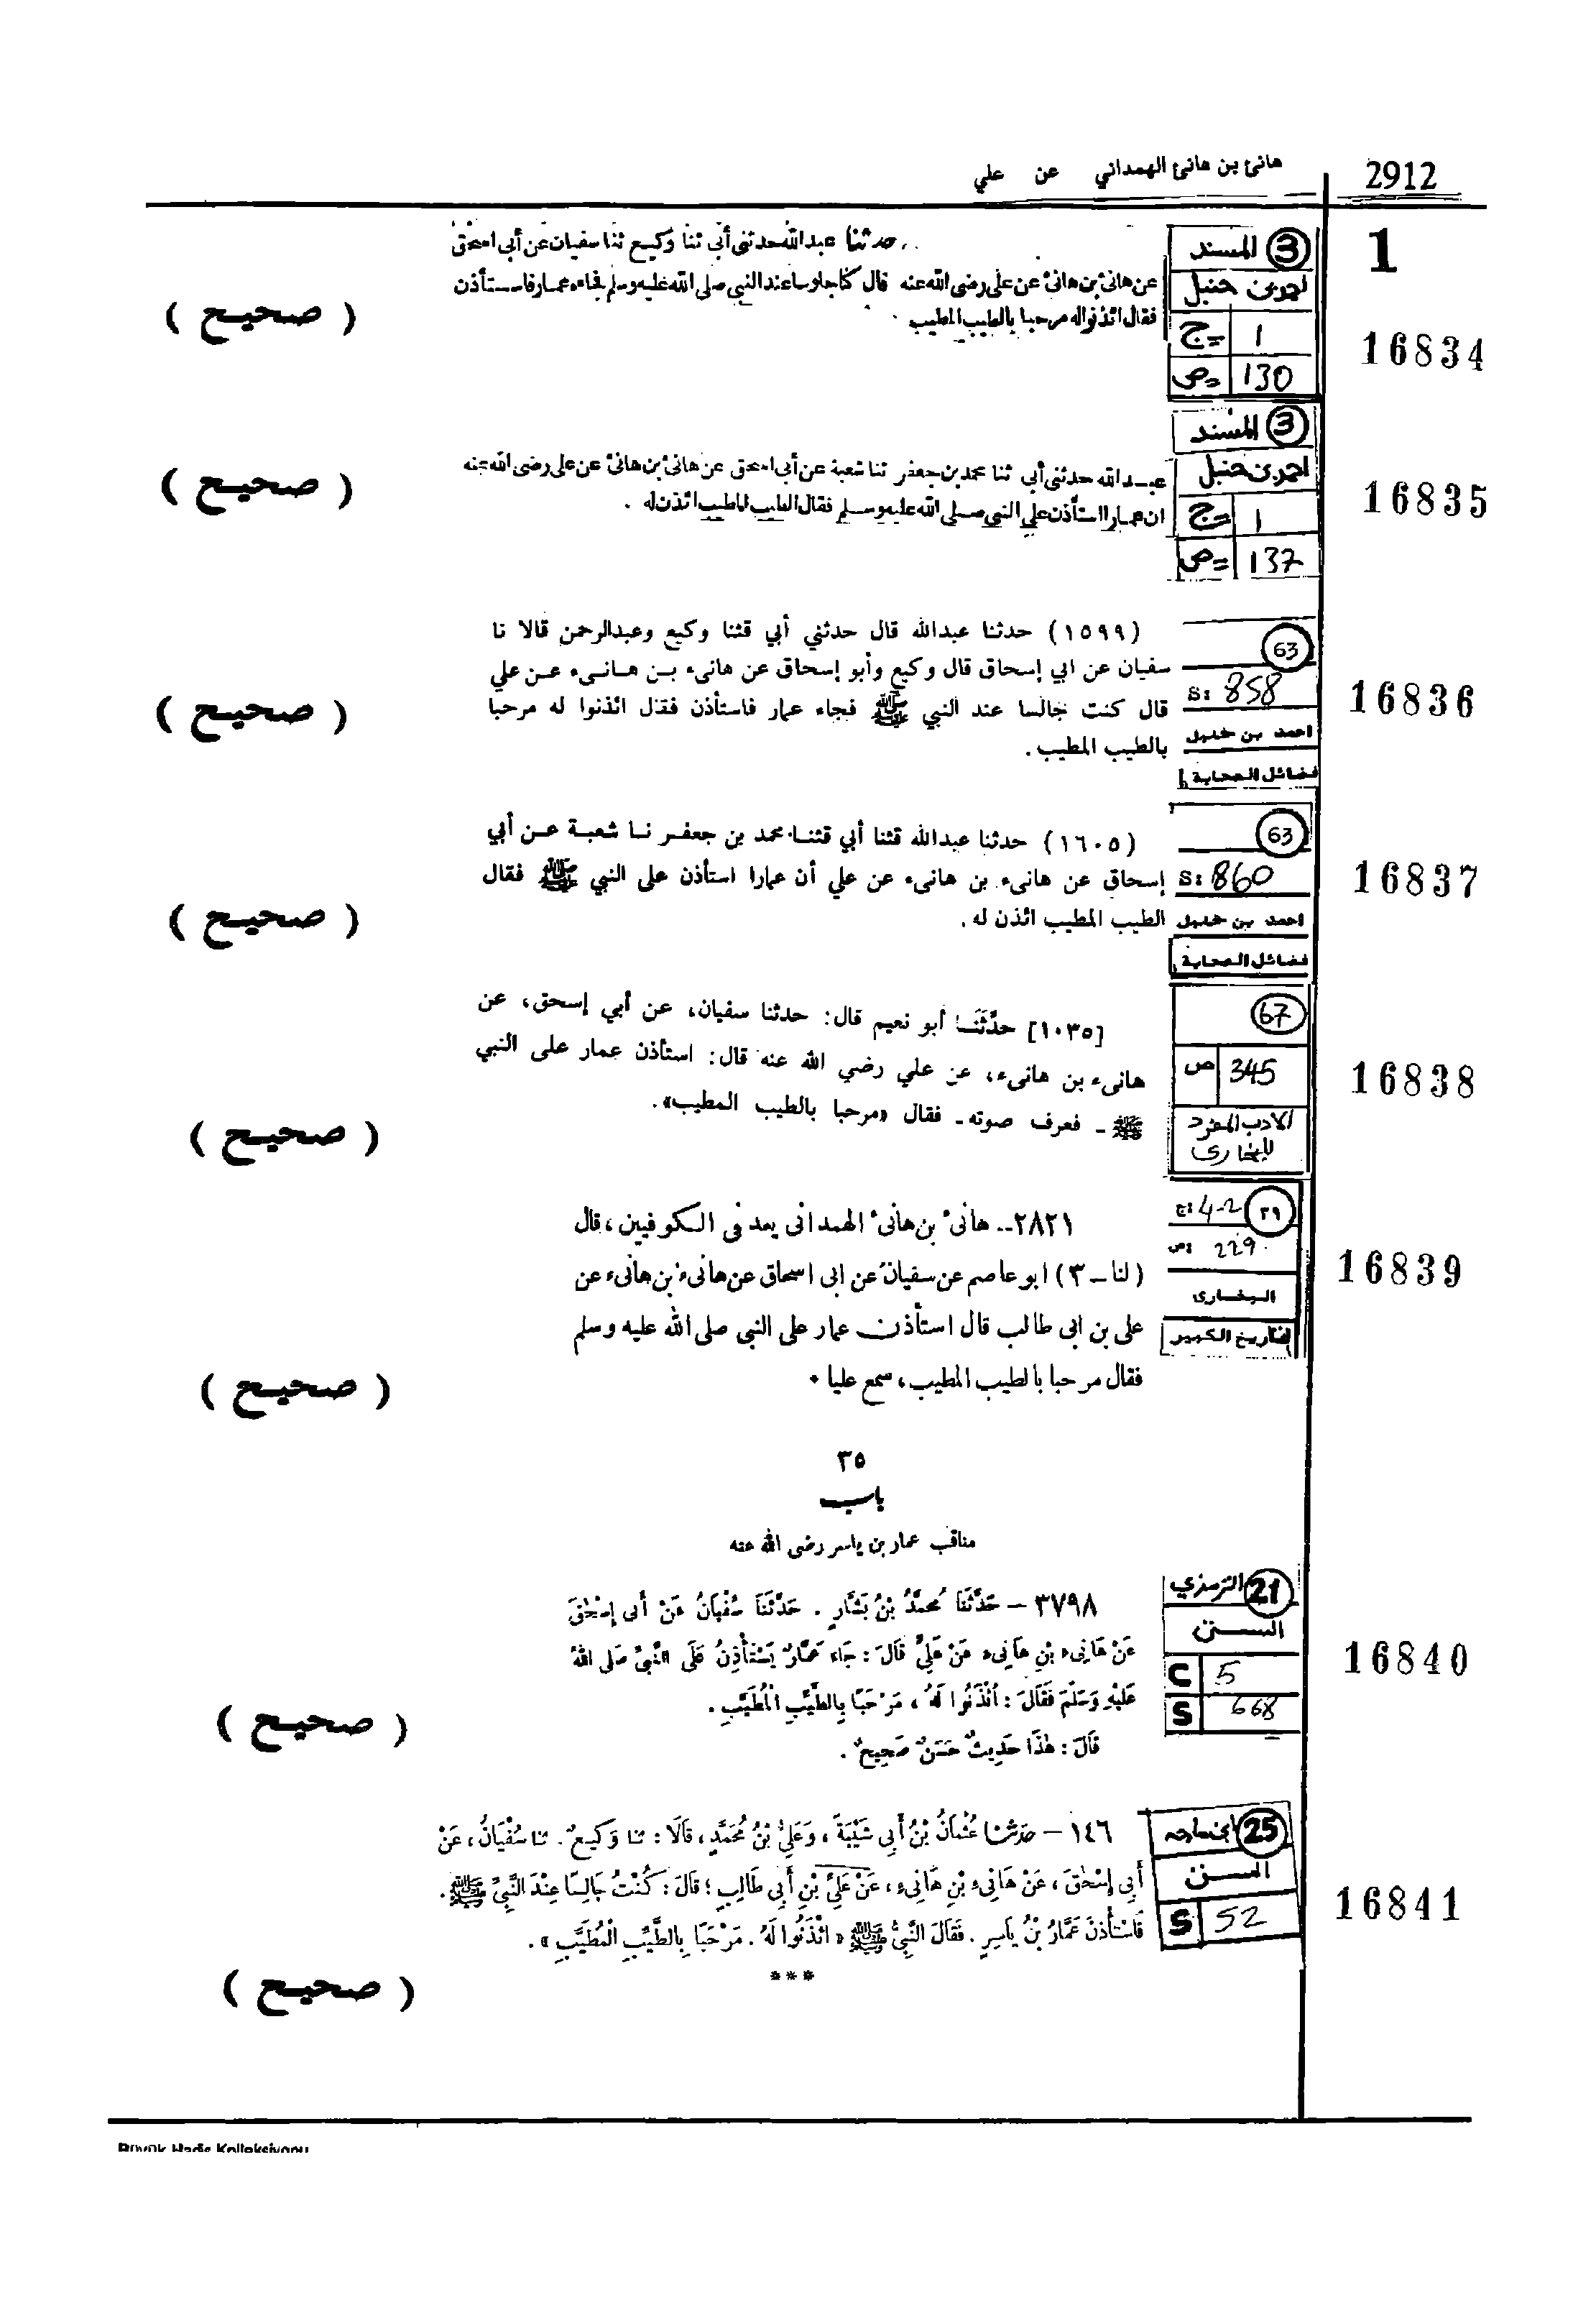 هانئ بن هانئ الهمداني عن علي
2912
1
3 المسند
احمد بن حنبل
ج= 1
ص= 130
16834
حدثنا عبدالله حدثنى أبى ثنا وكيع ثنا سفيان عن أبى اسحق
عن هانئ بن هانئ عن على رضى الله عنه قال كنا جلوسا عند النبى صلى الله عليه وسلم فجاء عمار فاستأذن
فقال ائذنواله مرحبا بالطيب المطيب
( صحيح )
3 المسند
احمد بن حنبل
ج= 1
ص= 137
16835
عبد الله حدثنى أبى ثنا محمد بن جعفر ثنا شعبة عن أبى اسحق عن هانئ بن هانئ عن على رضى الله عنه
ان عمارا استأذن على النبى صلى الله عليه وسلم فقال الطيب المطيب ائذن له .
( صحيح )
63
S: 858
احمد بن حنبل
فضائل الصحابة
16836
(١٥٩٩) حدثنا عبدالله قال حدثني أبي قثنا وكيع وعبدالرحمن قالا نا
سفيان عن ابي إسحاق قال وكيع وأبو إسحاق عن هانىء بن هانىء عن علي
قال كنت جالسا عند النبي ﷺ فجاء عمار فاستأذن فقال ائذنوا له مرحبا
بالطيب المطيب .
( صحيح )
63
S: 860
احمد بن حنبل
فضائل الصحابة
16837
(١٦٠٥) حدثنا عبدالله قثنا أبي قثنا محمد بن جعفر نا شعبة عن أبي
إسحاق عن هانىء بن هانىء عن علي أن عمارا استأذن على النبي ﷺ فقال
الطيب المطيب ائذن له .
( صحيح )
67
ص 345
الادب المفرد
للبخارى
16838
[١٠٣٥] حدَّثَنَا أبو نعيم قال: حدثنا سفيان، عن أبي إسحق، عن
هانىء بن هانىء، عن علي رضي الله عنه قال: استأذن عمار على النبي
ﷺ - فعرف صوته - فقال «مرحبا بالطيب المطيب».
( صحيح )
٢٩
ج: 4-2
ص: 229
البخارى
التاريخ الكبير
16839
٢٨٢١- هانئ بن هانئ الهمدانى يعد فى الكوفيين، قال
(لنا - ٣) ابو عاصم عن سفيان عن ابى اسحاق عن هانىء بن هانىء عن
على بن ابى طالب قال استأذن عمار على النبى صلى الله عليه وسلم
فقال مرحبا بالطيب المطيب، سمع عليا •
( صحيح )
٣٥
باب
مناقب عمار بن ياسر رضى الله عنه
21 الترمذي
السنن
C 5
S 668
16840
٣٧٩٨ - حَدَّثَنَا مُحمَّدُ بْنُ بَشَّارٍ . حَدَّثَنَا سُفْيَانُ عَنْ أَبى إِسْحٰقَ
عَنْ هَانِىء بْنِ هَانِىء عَنْ عَلِىٍّ قَالَ : جَاءَ عَمَّارٌ يَسْتَأْذِنُ عَلَى النَّبىِّ صَلى اللهُ
عَلَيْهِ وَسَلَّمَ فَقَالَ : اُئْذَنُوا لَهُ ، مَرْحَبًا بِالطَّيِّبِ الْمُطَيَّبِ .
قَالَ : هٰذَا حَدِيثٌ حَسَنٌ صَحِيحٌ .
( صحيح )
25 ابن ماجه
السنن
S 52
16841
١٤٦ - حدّثنا عُثْمَانُ بْنُ أَبِى شَيْبَةَ ، وَعَلِىُّ بْنُ مُحَمَّدٍ ، قَالَا : ثنا وَكِيعٌ . ثنا سُفْيَانُ ، عَنْ
أَبِى إِسْحٰقَ ، عَنْ هَانِىءِ بْنِ هَانِىءٍ ، عَنْ عَلِىِّ بْنِ أَبِى طَالِبٍ ؛ قَالَ : كُنْتُ جَالِسًا عِنْدَ النَّبِىِّ ﷺ .
فَاسْتَأْذَنَ عَمَّارُ بْنُ يَاسِرٍ . فَقَالَ النَّبِىُّ ﷺ « ائْذَنُوا لَهُ . مَرْحَبًا بِالطَّيِّبِ الْمُطَيَّبِ » .
***
( صحيح )
Büyük Hadis Kolleksiyonu